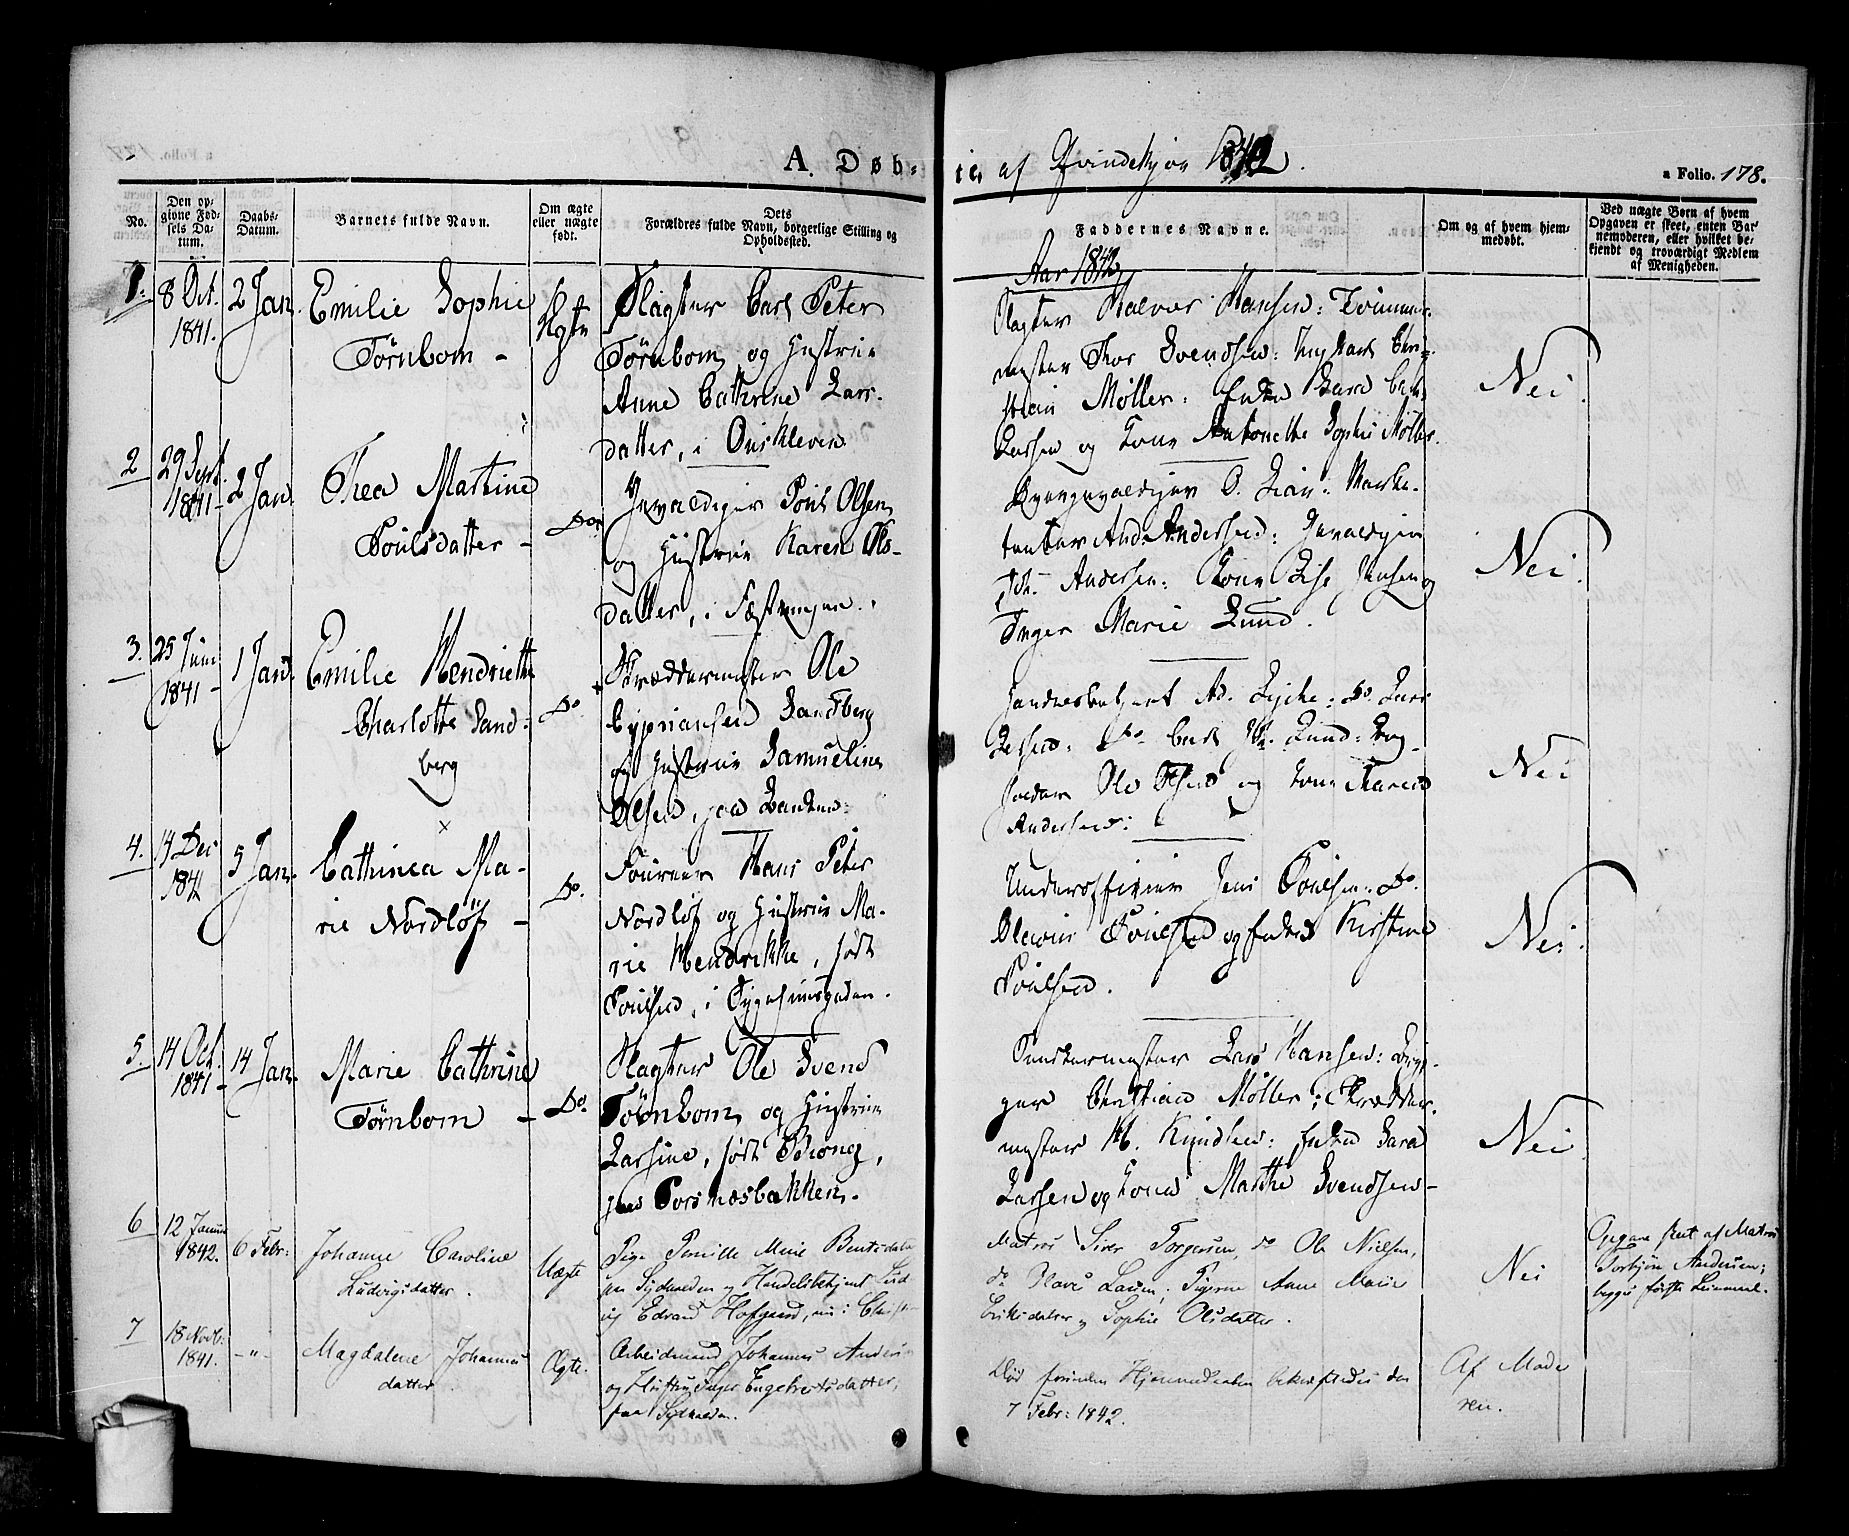 A. Døb-
te, af Qvindekjøn 1842.
a Folio. 178.
No.
Den op-
givne Fød-
sels Da-
tum.
Daabs-
Datum.
Barnets fulde Navn.
Om ægte
eller uægte
født.
Dets
Forældres fulde Navn, borgerlige Stilling og
Opholdssted.
Faddernes Navne.
Om og af hvem hjem-
medøbt.
Ved uægte Børn af hvem
Opgaven er skeet, enten Bar-
nemoderen, eller hvilket be-
kjendt og troværdigt Medlem
af Menigheden.
Aar 1842
1.
8 Oct.
1841.
2 Jan.
Emilie Sophie
Törnbom -
Ægte
Slagter Carl Peter
Törnbom og Hustrue
Anne Cathrine Lars-
datter, i
Slagter Halvor Hansen: Tømmer-
mester Thor Svendsen: Chri-
stian Møller: Enken Sara
Larsen og Kone Antonette Sophie Møller.
Nei.
2
29 Sept.
1841 -
2 Jan.
Thea Martine
Poulsdatter -
Do.
Gevaldiger Poul Olsen
og Hustrue Karen Ols-
datter, i Fæstningen.
O. Lian: Marke-
tenter And. Andersen: Gevaldiger
Andersen: Kone Lise Jensen og
Inger Marie Lund.
Nei.
3.
25 Juni
1841 -
1 Jan.
Emilie Hendriette
Charlotte Sand-
berg
Do.
Skræddermester Ole
Cypriansen Sandberg
og Hustrue Samueline
Olsen, paa Banken.
Handelsbetjent Ad. Lyche: Do. Lars
Do. Carl Lund:
Ole Olsen og Kone Maren
Andersen:
Nei
4.
14 Dec
1841
5 Jan.
Cathinca Ma-
rie Nordlöf -
Do.
Foureer Hans Peter
Nordlöf og Hustrue Ma-
rie Hendrikke, født
Poulsen, i
Underofficier Jens Poulsen: Do.
Poulsen og Enken Kirstine
Poulsen.
Nei.
5.
14 Oct.
1841 -
14 Jan.
Marie Cathrine
Törnbom -
Do.
Slagter Ole Svend
Törnbom og Hustrue
Larsine, født Brong,
paa Torsnæsbakken.
Lars Hansen: Bryg-
ger Christian Møller; Skrædder-
mester H. Knudsen: Enken Sara
Larsen og Kone Marthe Svendsen -
Nei.
6
12 Januar
1842.
6 Febr:
Johanne Caroline
Ludvigsdatter.
Uægte
Pige Pernille Marie Bentsdatter
paa Sydsiden og Handelsbetjent Lud-
vig Edvard Hofgaard, nu i
Matros Siver Torgersen, do Ole Nielsen,
do Larsen, Pigerne Anne Marie
Eriksdatter og Sophie Olsdatter.
Nei
Opgave skeet af Matros
Torbjørn Andersen;
begges første Leiermaal.
7
18 Novb:
1841.
- " -
Magdalene Johannes
datter.
Ægte.
Arbeidsmand Johannes Andersen
og Hustru Inger Engebretsdatter,
paa Sydsiden.
Død forinden Hjemmedaaben bekræftedes den
7 Febr: 1842.
Af Mode
ren.